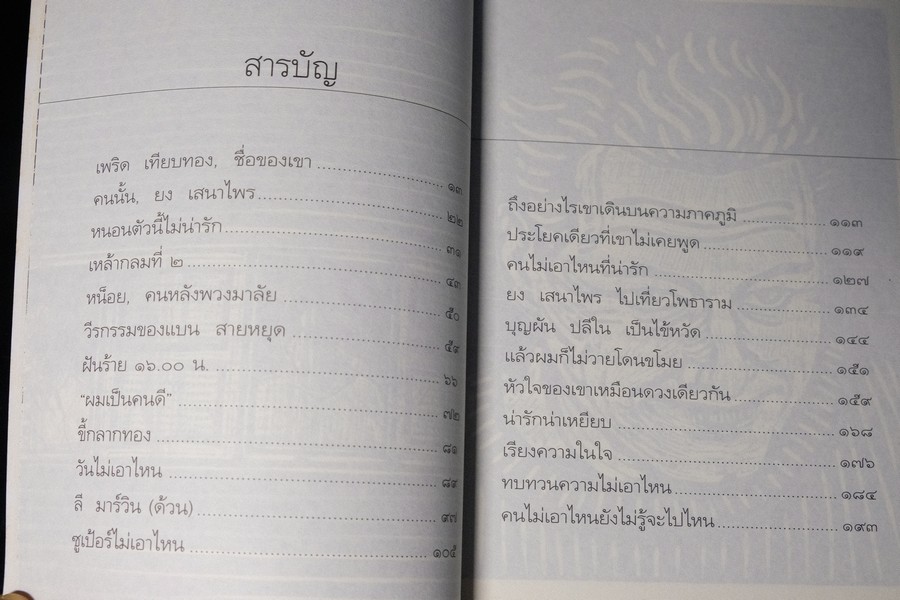 สารบัญ
เพริด เทียบทอง, ชื่อของเขา ๑๓
คนนั้น, ยง เสนาไพร ๒๒
หนอนตัวนี้ไม่น่ารัก ๓๑
เหล้ากลมที่ ๒ ๔๓
หน็อย, คนหลังพวงมาลัย ๕๐
วีรกรรมของแบน สายหยุด ๕๙
ฝันร้าย ๑๖.๐๐ น. ๖๖
“ผมเป็นคนดี” ๗๒
ขี้กลากทอง ๘๑
วันไม่เอาไหน ๘๙
ลี มาร์วิน (ด้วน) ๙๗
ซูเป้อร์ไม่เอาไหน ๑๐๕
ถึงอย่างไรเขาเดินบนความภาคภูมิ ๑๑๓
ประโยคเดียวที่เขาไม่เคยพูด ๑๑๙
คนไม่เอาไหนที่น่ารัก ๑๒๗
ยง เสนาไพร ไปเที่ยวโพธาราม ๑๓๔
บุญผัน ปลีใน เป็นไข้หวัด ๑๔๔
แล้วผมก็ไม่วายโดนขโมย ๑๕๑
หัวใจของเขาเหมือนดวงเดียวกัน ๑๕๙
น่ารักน่าเหยียบ ๑๖๘
เรียงความในใจ ๑๗๖
ทบทวนความไม่เอาไหน ๑๘๔
คนไม่เอาไหนยังไม่รู้จะไปไหน ๑๙๓